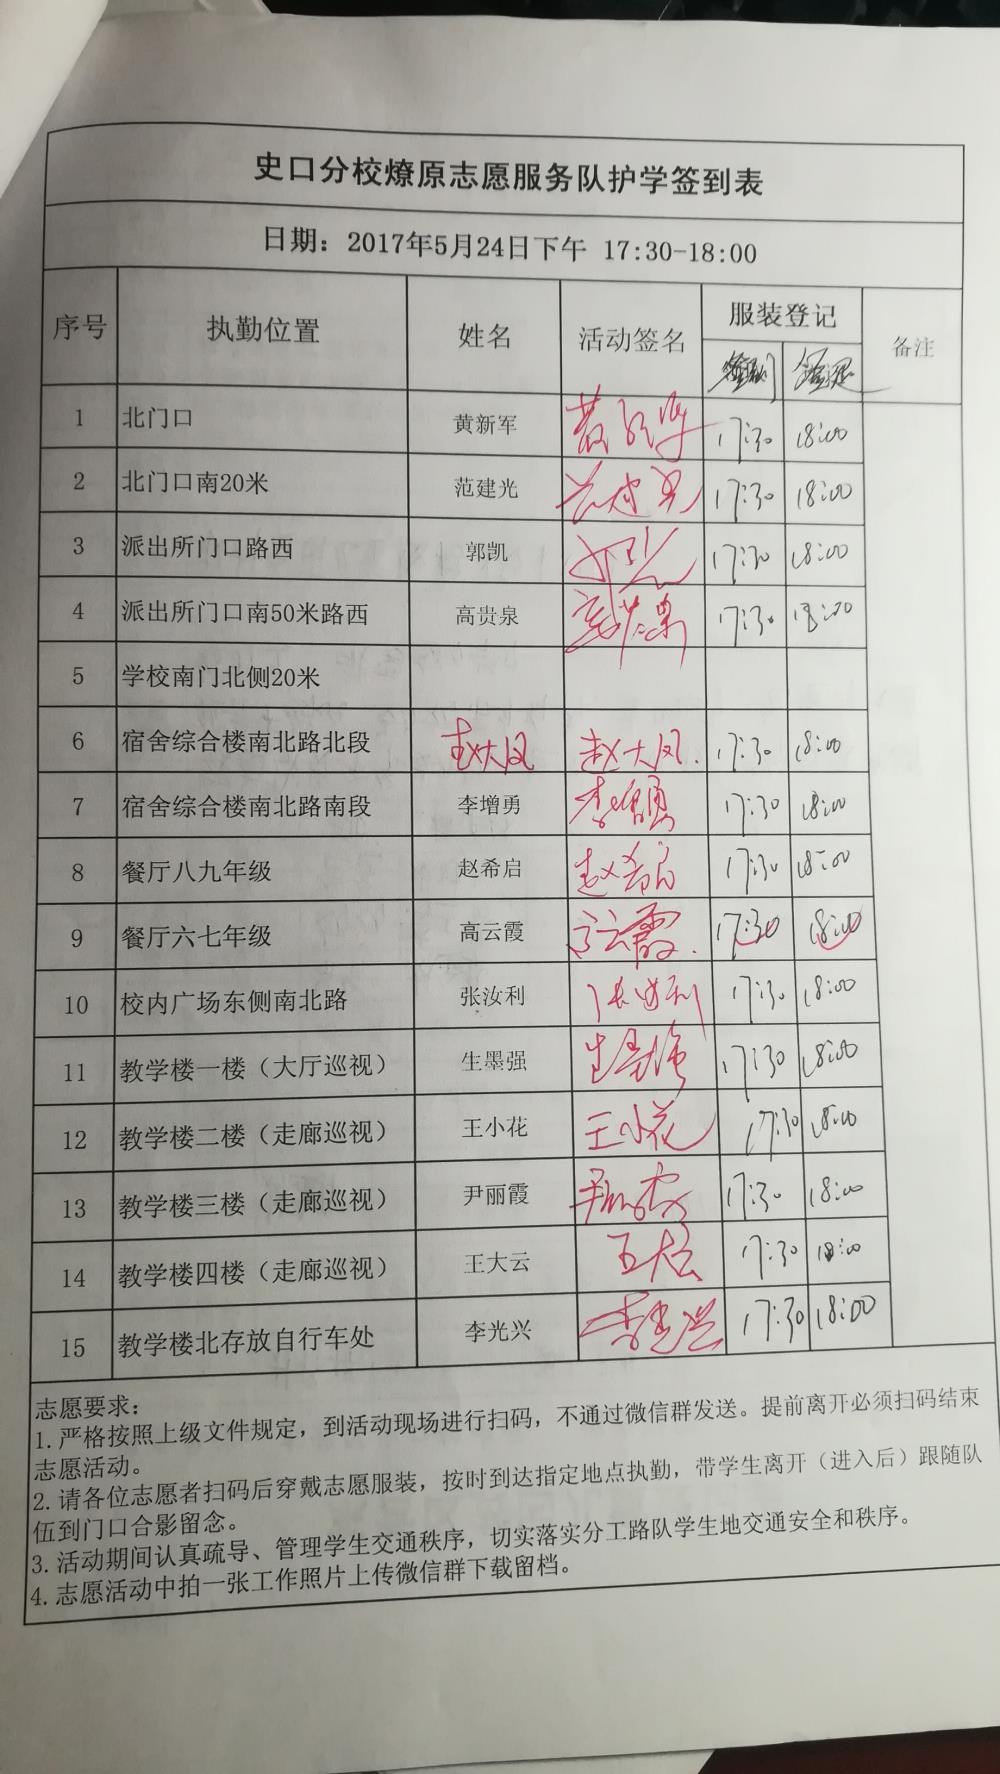 史口分校燎原志愿服务队护学签到表
日期：2017年5月24日下午 17:30-18:00
序号 执勤位置 姓名 活动签名 服装登记 备注
1 北门口 黄新军 黄新军 17:30 18:00
2 北门口南20米 范建光 范建光 17:30 18:00
3 派出所门口路西 郭凯 郭凯 17:30 18:00
4 派出所门口南50米路西 高贵泉 高贵泉 17:30 18:00
5 学校南门北侧20米
6 宿舍综合楼南北路北段 赵大凤 赵大凤 17:30 18:00
7 宿舍综合楼南北路南段 李增勇 李增勇 17:30 18:00
8 餐厅八九年级 赵希启 赵希启 17:30 18:00
9 餐厅六七年级 高云霞 高云霞 17:30 18:00
10 校内广场东侧南北路 张汝利 张汝利 17:30 18:00
11 教学楼一楼（大厅巡视） 生墨强 生墨强 17:30 18:00
12 教学楼二楼（走廊巡视） 王小花 王小花 17:30 18:00
13 教学楼三楼（走廊巡视） 尹丽霞 尹丽霞 17:30 18:00
14 教学楼四楼（走廊巡视） 王大云 王大云 17:30 18:00
15 教学楼北存放自行车处 李光兴 李光兴 17:30 18:00
志愿要求：
1.严格按照上级文件规定，到活动现场进行扫码，不通过微信群发送。提前离开必须扫码结束
志愿活动。
2.请各位志愿者扫码后穿戴志愿服装，按时到达指定地点执勤，带学生离开（进入后）跟随队
伍到门口合影留念。
3.活动期间认真疏导、管理学生交通秩序，切实落实分工路队学生地交通安全和秩序。
4.志愿活动中拍一张工作照片上传微信群下载留档。